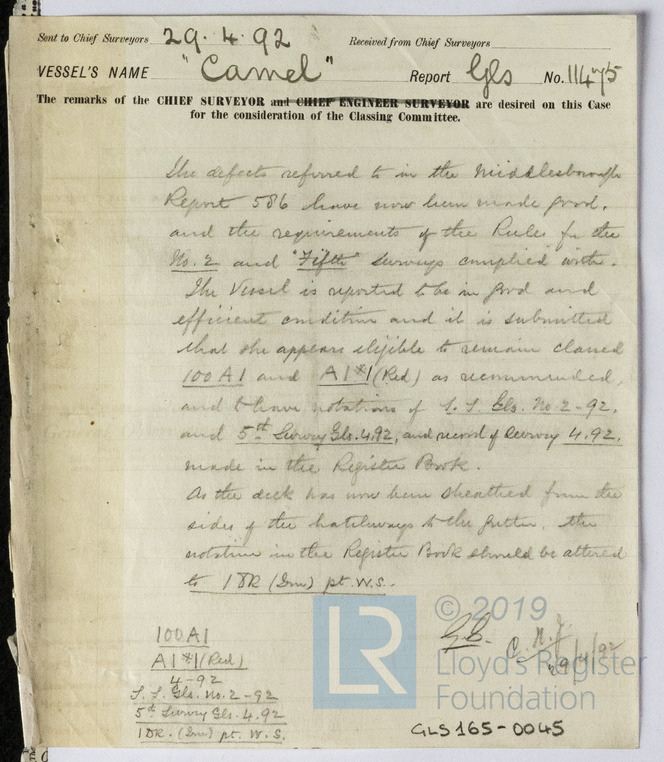 Sent to Chief Surveyors 29.4.92 Received from Chief Surveyors
VESSEL'S NAME "Camel" Report Gls No. 11475
The remarks of the CHIEF SURVEYOR and CHIEF ENGINEER SURVEYOR are desired on this Case
for the consideration of the Classing Committee.
The defects referred to in the Middlesborough
Report 586 have now been made good,
and the requirements of the Rules for the
No. 2 and "Fifth" Surveys complied with.
The Vessel is reported to be in good and
efficient condition and it is submitted
that she appears eligible to remain classed
100 A1 and A1*1 (Red) as recommended,
and to have notations of S.S. Gls. No. 2-92.
and 5th Survey Gls. 4.92, and record of Survey 4.92,
made in the Register Book.
As the deck has now been sheathed from the
sides of the hatchways to the gutter, the
notation in the Register Book should be altered
to 1 DK (Irn) pt. W.S.
100 A1
A1*1 (Red)
4-92
S.S. Gls. No. 2-92
5th Survey Gls. 4.92
1 DK. (Irn) pt. W.S.
29/4/92
LR
© 2019
Lloyd's Register
Foundation
GLS165-0045